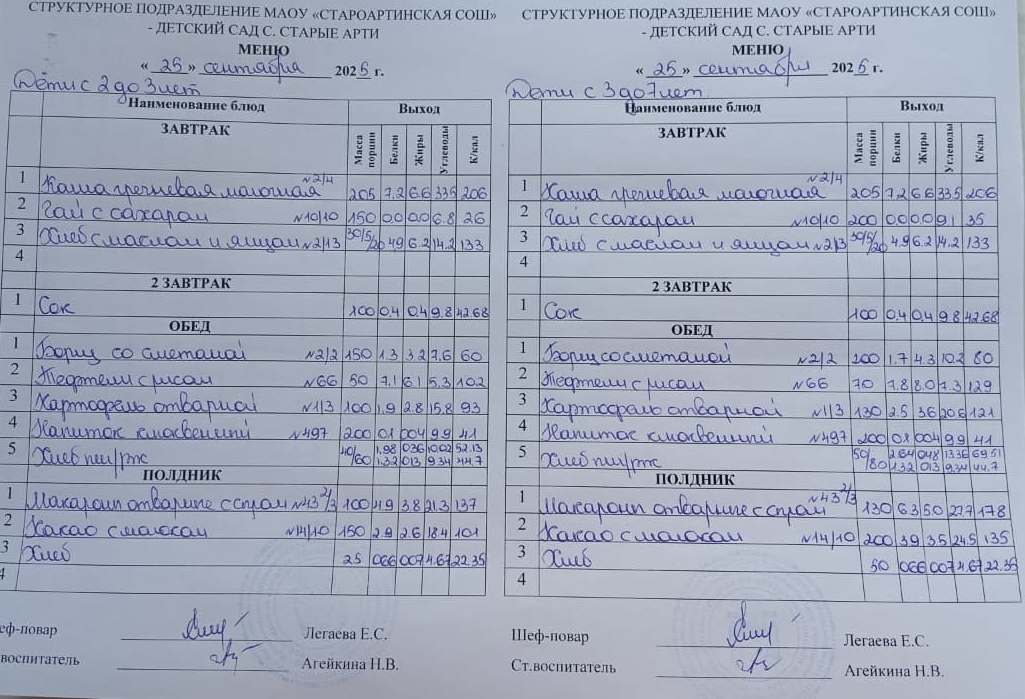 СТРУКТУРНОЕ ПОДРАЗДЕЛЕНИЕ МАОУ «СТАРОАРТИНСКАЯ СОШ»
- ДЕТСКИЙ САД С. СТАРЫЕ АРТИ
МЕНЮ
« 25 » сентября 2025 г.
Дети с 2 до 3 лет
Наименование блюд Выход
ЗАВТРАК Масса порции Белки Жиры Углеводы К/кал
1 Каша гречневая молочная №2/4 205 7.2 6.6 33.5 206
2 Чай с сахаром №10/10 150 0.0 0.0 6.8 26
3 Хлеб с маслом и яйцом №2/13 30/5/20 4.9 6.2 14.2 133
4
2 ЗАВТРАК
1 Сок 100 0,4 0,4 9.8 42.68
ОБЕД
1 Борщ со сметаной №2/2 150 1.3 3.2 7.6 60
2 Тефтели с рисом №66 50 7.1 6.1 5.3 102
3 Картофель отварной №1/3 100 1.9 2.8 15.8 93
4 Напиток клюквенный №497 200 0.1 0.04 9.9 41
5 Хлеб пш/рж 40/60 1,98 0.36 10.02 52.13
1.32 0.13 9.34 44.7
ПОЛДНИК
1 Макароны отварные с сыром №43 2/3 100 4.9 3.8 21.3 137
2 Какао с молоком №14/10 150 2.9 2.6 18.4 101
3 Хлеб 25 0.66 0.07 4.67 22.35
4
еф-повар Легаева Е.С.
воспитатель Агейкина Н.В.
СТРУКТУРНОЕ ПОДРАЗДЕЛЕНИЕ МАОУ «СТАРОАРТИНСКАЯ СОШ»
- ДЕТСКИЙ САД С. СТАРЫЕ АРТИ
МЕНЮ
« 25 » сентября 2025 г.
Дети с 3 до 7 лет
Наименование блюд Выход
ЗАВТРАК Масса порции Белки Жиры Углеводы К/кал
1 Каша гречневая молочная №2/4 205 7.2 6.6 33.5 206
2 Чай с сахаром №10/10 200 0.0 0.0 9.1 35
3 Хлеб с маслом и яйцом №2/13 30/5/20 4.9 6.2 14.2 133
4
2 ЗАВТРАК
1 Сок 100 0.4 0.4 9.8 42.68
ОБЕД
1 Борщ со сметаной №2/2 200 1.7 4.3 10.2 80
2 Тефтели с рисом №66 70 7.8 8.0 7.3 129
3 Картофель отварной №1/3 130 2.5 3.6 20.6 121
4 Напиток клюквенный №497 200 0.1 0.04 9.9 41
5 Хлеб пш/рж 50/80 2.64 0.48 13.36 69.51
1.32 0.13 9.34 44.7
ПОЛДНИК
1 Макароны отварные с сыром №43 2/3 130 6.3 5.0 27.7 178
2 Какао с молоком №14/10 200 3.9 3.5 24.5 135
3 Хлеб 50 0.66 0.07 4.67 22.35
4
Шеф-повар Легаева Е.С.
Ст.воспитатель Агейкина Н.В.